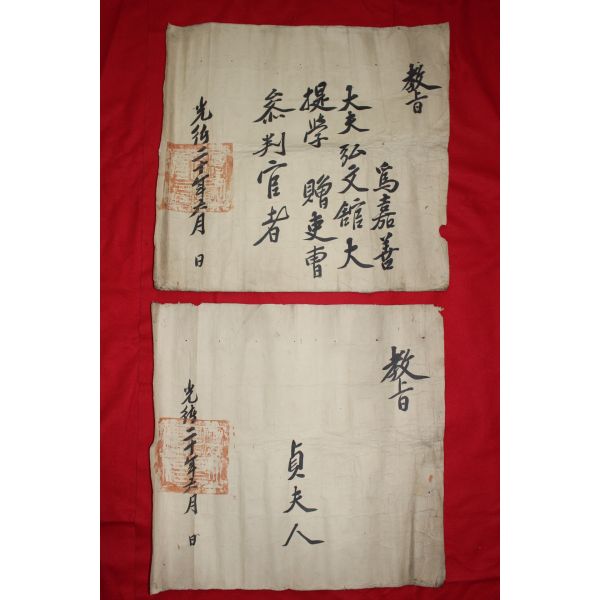 教旨
爲嘉善
大夫弘文館大
提学 贈吏曹
叅判官者
光緒二十年六月 日
教旨
貞夫人
光緒二十年六月 日